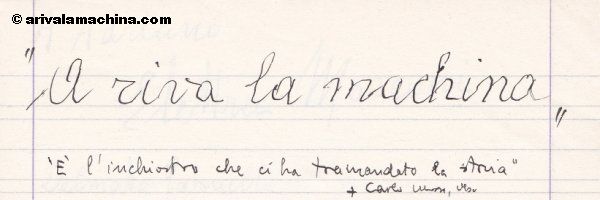 © arivalamachina.com
"A riva la machina"
"È l'inchiostro che ci ha tramandato la storia"
+ Carlo